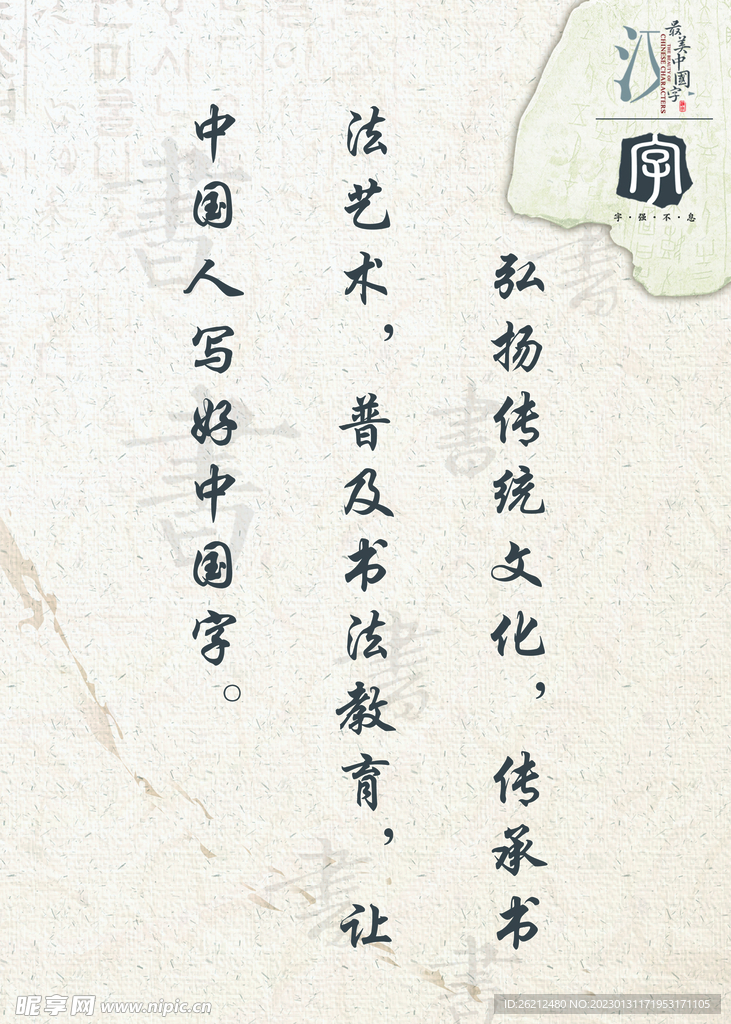 弘扬传统文化，传承书
法艺术，普及书法教育，让
中国人写好中国字。
汉
最美中国字
THE BEAUTY OF
CHINESE CHARACTERS
字
字·强·不·息
書
書
書
書
書
書
書
昵享网 www.nipic.cn
ID:26212480 NO:20230131171953171105